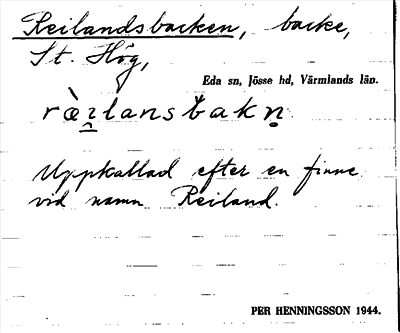 Reilandsbacken, backe,
St. Hög,
Eda sn, Jösse hd, Värmlands län.
ràı̲lansbakn̥
Uppkallad efter en finne
vid namn Reiland.
PER HENNINGSSON 1944.